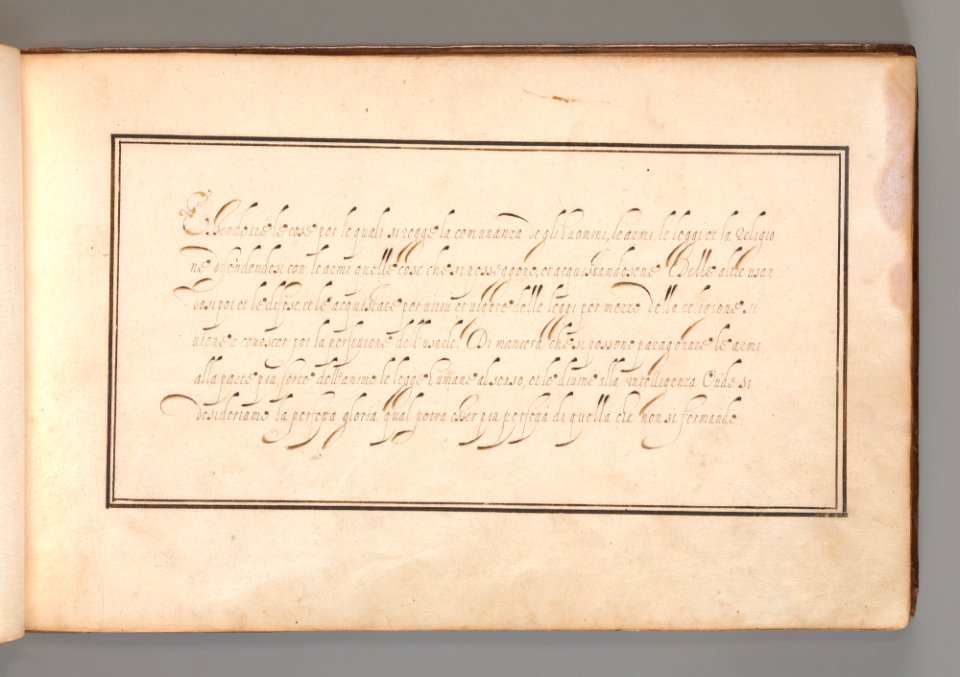 Essendo tre le cose per le quali si regge la comunanza de gli huomini, le armi, le leggi et la Religio
ne difendendosi con le armi quelle cose che si posseggono, et acquistandosene delle altre usan
dosi poi et le difese, et le acquistate per virtù et vigore delle leggi per mezzo della religione si
viene a conoscer poi la perfettione de l'usarle. Di maniera che si possono paragonare le armi
alla parte piu forte dell'animo le legge humane al senso, et le divine alla intelligenza Onde se
desideriamo la perfetta gloria qual potra esser piu perfetta di quella che non si fermando